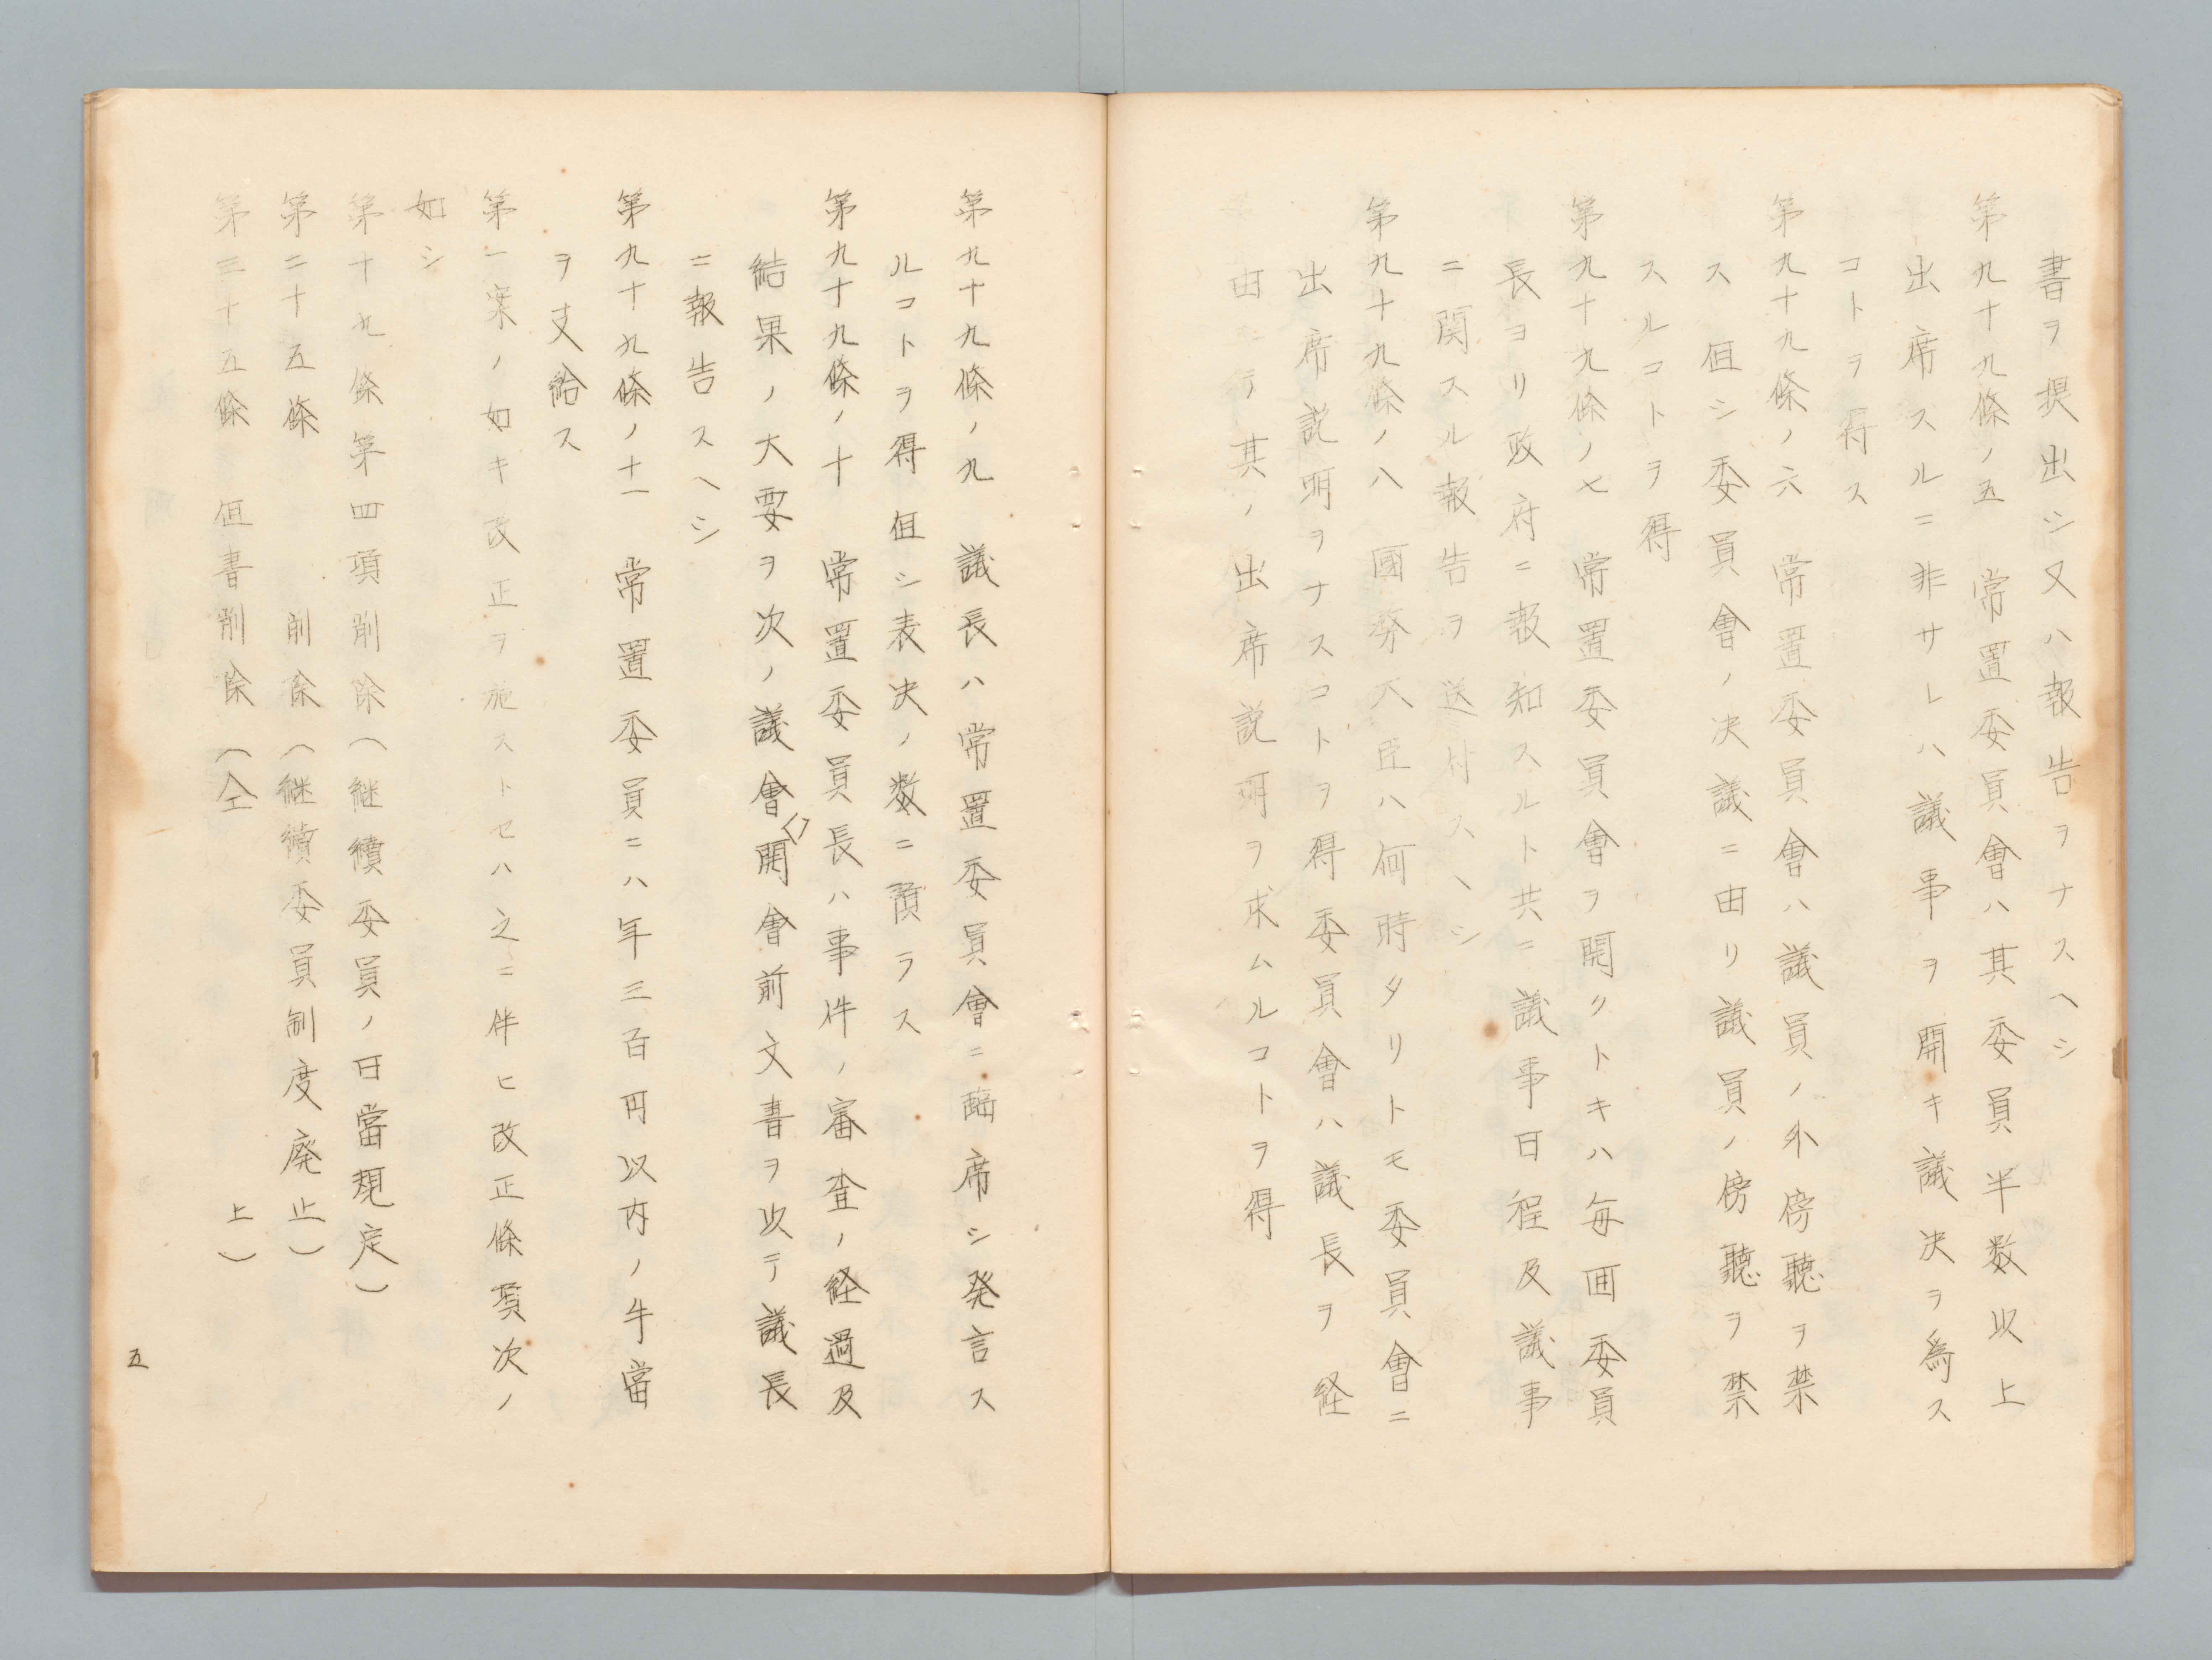 書ヲ提出シ又ハ報告ヲナスヘシ
第九十九條ノ五　常置委員會ハ其委員半数以上
出席スルニ非サレハ議事ヲ開キ議決ヲ為ス
コトヲ得ス
第九十九條ノ六　常置委員會ハ議員ノ外傍聽ヲ禁
ス但シ委員會ノ決議ニ由リ議員ノ傍聽ヲ禁
スルコトヲ得
第九十九條ノ七　常置委員會ヲ開クトキハ毎囬委員
長ヨリ政府ニ報知スルト共ニ議事日程及議事
ニ関スル報告ヲ送付スヘシ
第九十九條ノ八　國務大臣ハ何時タリトモ委員會ニ
出席説明ヲナスコトヲ得委員會ハ議長ヲ経
由シテ其ノ出席説明ヲ求ムルコトヲ得
第九十九條ノ九　議長ハ常置委員會ニ臨席シ発言ス
ルコトヲ得但シ表決ノ数ニ預ラス
第九十九條ノ十　常置委員長ハ事件ノ審査ノ経過及
結果ノ大要ヲ次ノ議會開會前文書ヲ以テ議長
ニ報告スヘシ
第九十九條ノ十一　常置委員ニハ年三百円以内ノ手當
ヲ支給ス
第一案ノ如キ改正ヲ施ストセハ之ニ伴ヒ改正條項次ノ
如シ
第十九條第四項削除（継續委員ノ日當規定）
第二十五條　削除（継續委員制度廃止）
第三十五條　但書削除（仝　上）
五